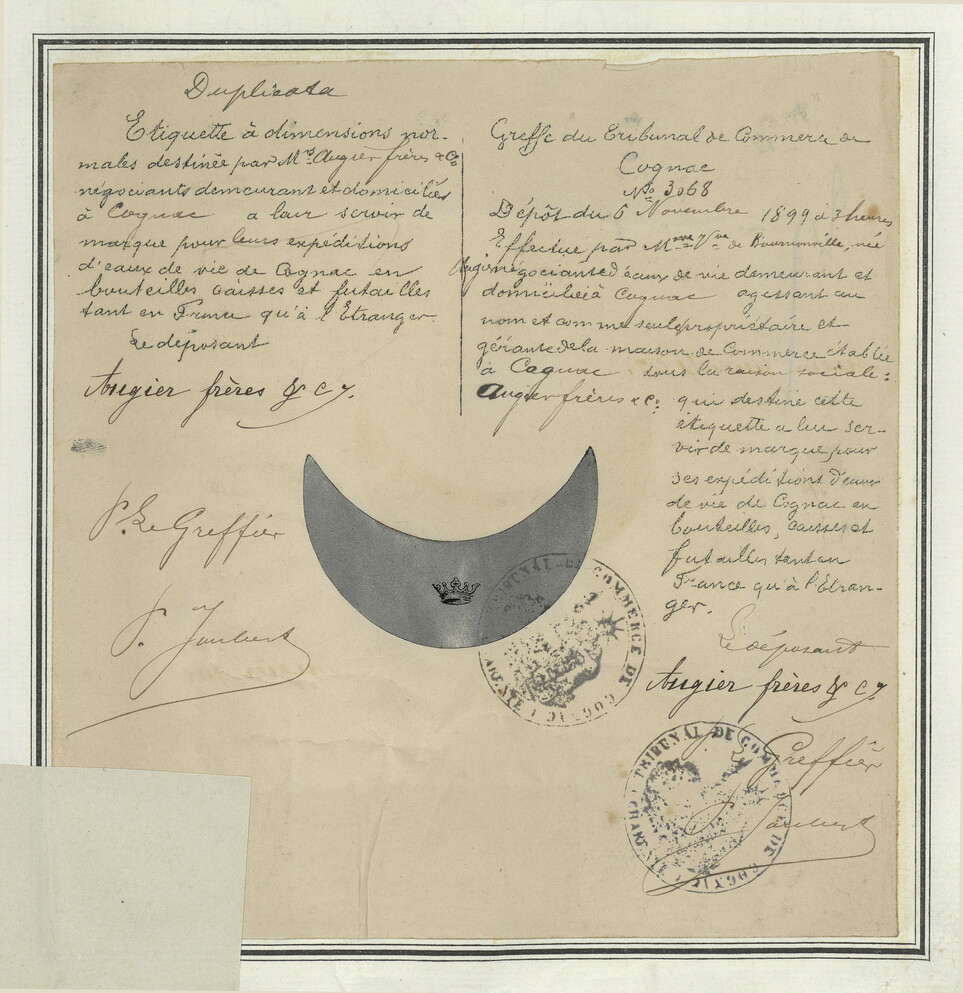 Duplicata
Etiquette à dimensions nor-
males destinée par Mrs Augier frères & Co
négociants demeurant et domiciliés
à Cognac a leur servir de
marque pour leurs expéditions
d'eaux de vie de Cognac en
bouteilles caisses et futailles
tant en France qu'à l'Etranger.
Le déposant
Augier frères & Cy.
P. Le Greffier
P. Joubert
Greffe du Tribunal de Commerce de
Cognac
No 3068
Dépôt du 6 Novembre 1899 à 3 heures
Effectué par Mme Vve de Bournonville, née
Augier négociante d'eaux de vie demeurant et
domiciliée à Cognac agissant au
nom et comme seule propriétaire et
gérante de la maison de Commerce établie
à Cognac sous la raison sociale:
Augier frères & Co. qui destine cette
étiquette a lui ser-
vir de marque pour
ses expéditions d'eaux
de vie de Cognac en
bouteilles, caisses et
futailles tant en
France qu'à l'Etran-
ger.
Le déposant
Augier frères & Cy.
P. Le Greffier
P. Joubert
TRIBUNAL DE COMMERCE DE COGNAC (CHARENTE)
TRIBUNAL DE COMMERCE DE COGNAC (CHARENTE)